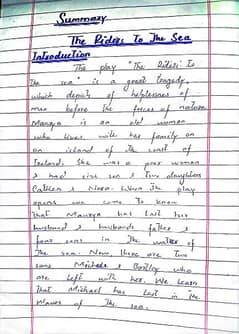 Summary
The Riders To The Sea
Introduction
The play "The Riders To
The sea" is a great tragedy,
which depicts of helplessness of
man before the forces of nature
Maurya is an old woman
who lives with her family on
an island of the coast of
Ireland. She was a poor woman
& had six son & two daughters
Cathleen & Nora. When The play
opens we come To know
That Maurya has lost her
husband & husbands father &
four sons in The water of
The sea. Now, there are two
sons Michael & Bartley who
are left with her. We learn
That Michael has lost in The
waves of The sea.